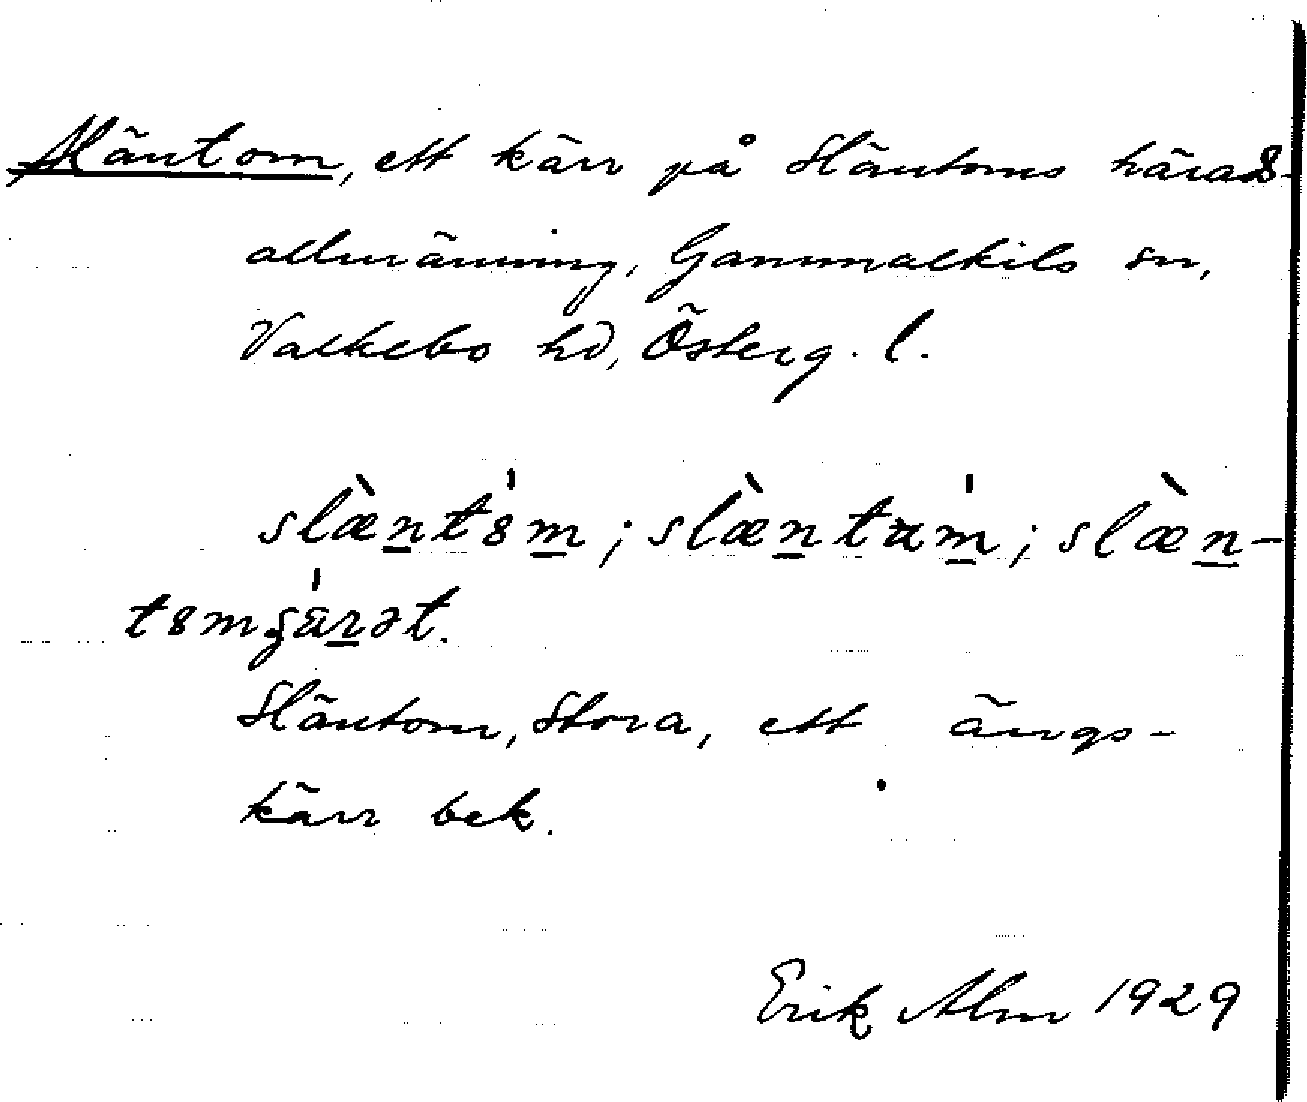 Släntom, ett kärr på Släntoms härads-
allmänning, Gammalkils sn,
Valkebo hd, Österg. l.
slæ̀nt8̍m; slæ̀ntɯm̍; slæ̀n-
t8mʂä̍rət.
Släntom, Stora, ett ängs-
kärr bek.
Erik Alm 1929